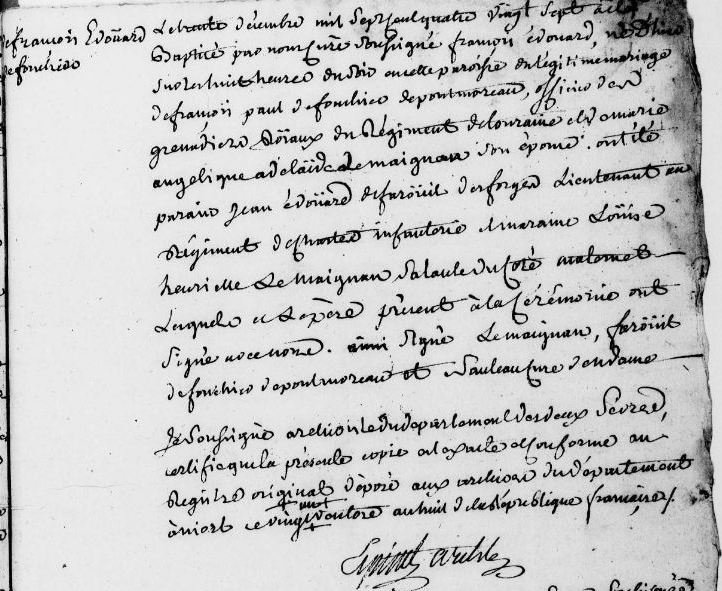 françois Edoüard
de fouchier
Le trente décembre mil sept cent quatre vingt sept a été
Baptisé par nous curé soussigné françois édouard, né d'hier
sur les huit heures du soir en cette paroisse du légitime mariage
de françois paul de fouchier de pontmoreau, officier des
grenadiers Roïaux du Régiment de louraine et de marie
angelique adelaide Le maignan son épouse. ont été
parain Jean édoüard de faroüil desforges Lieutenant au
Régiment de chartres infanterie et maraine Loüise
henriette Le Maignan sa tante du coté maternel
Lesquels et Le père présent à la Cérémonie ont
signé avec nous. ainsi signé Lemaignan, faroüil
de fouchier de pontmoreau et Sauleau curé
Je soussigné archiviste du département des deux Sèvres,
certifie que la présente copie est exacte et conforme au
Registre original déposé aux archives du département
à niort ce vingt an huit de la République française.